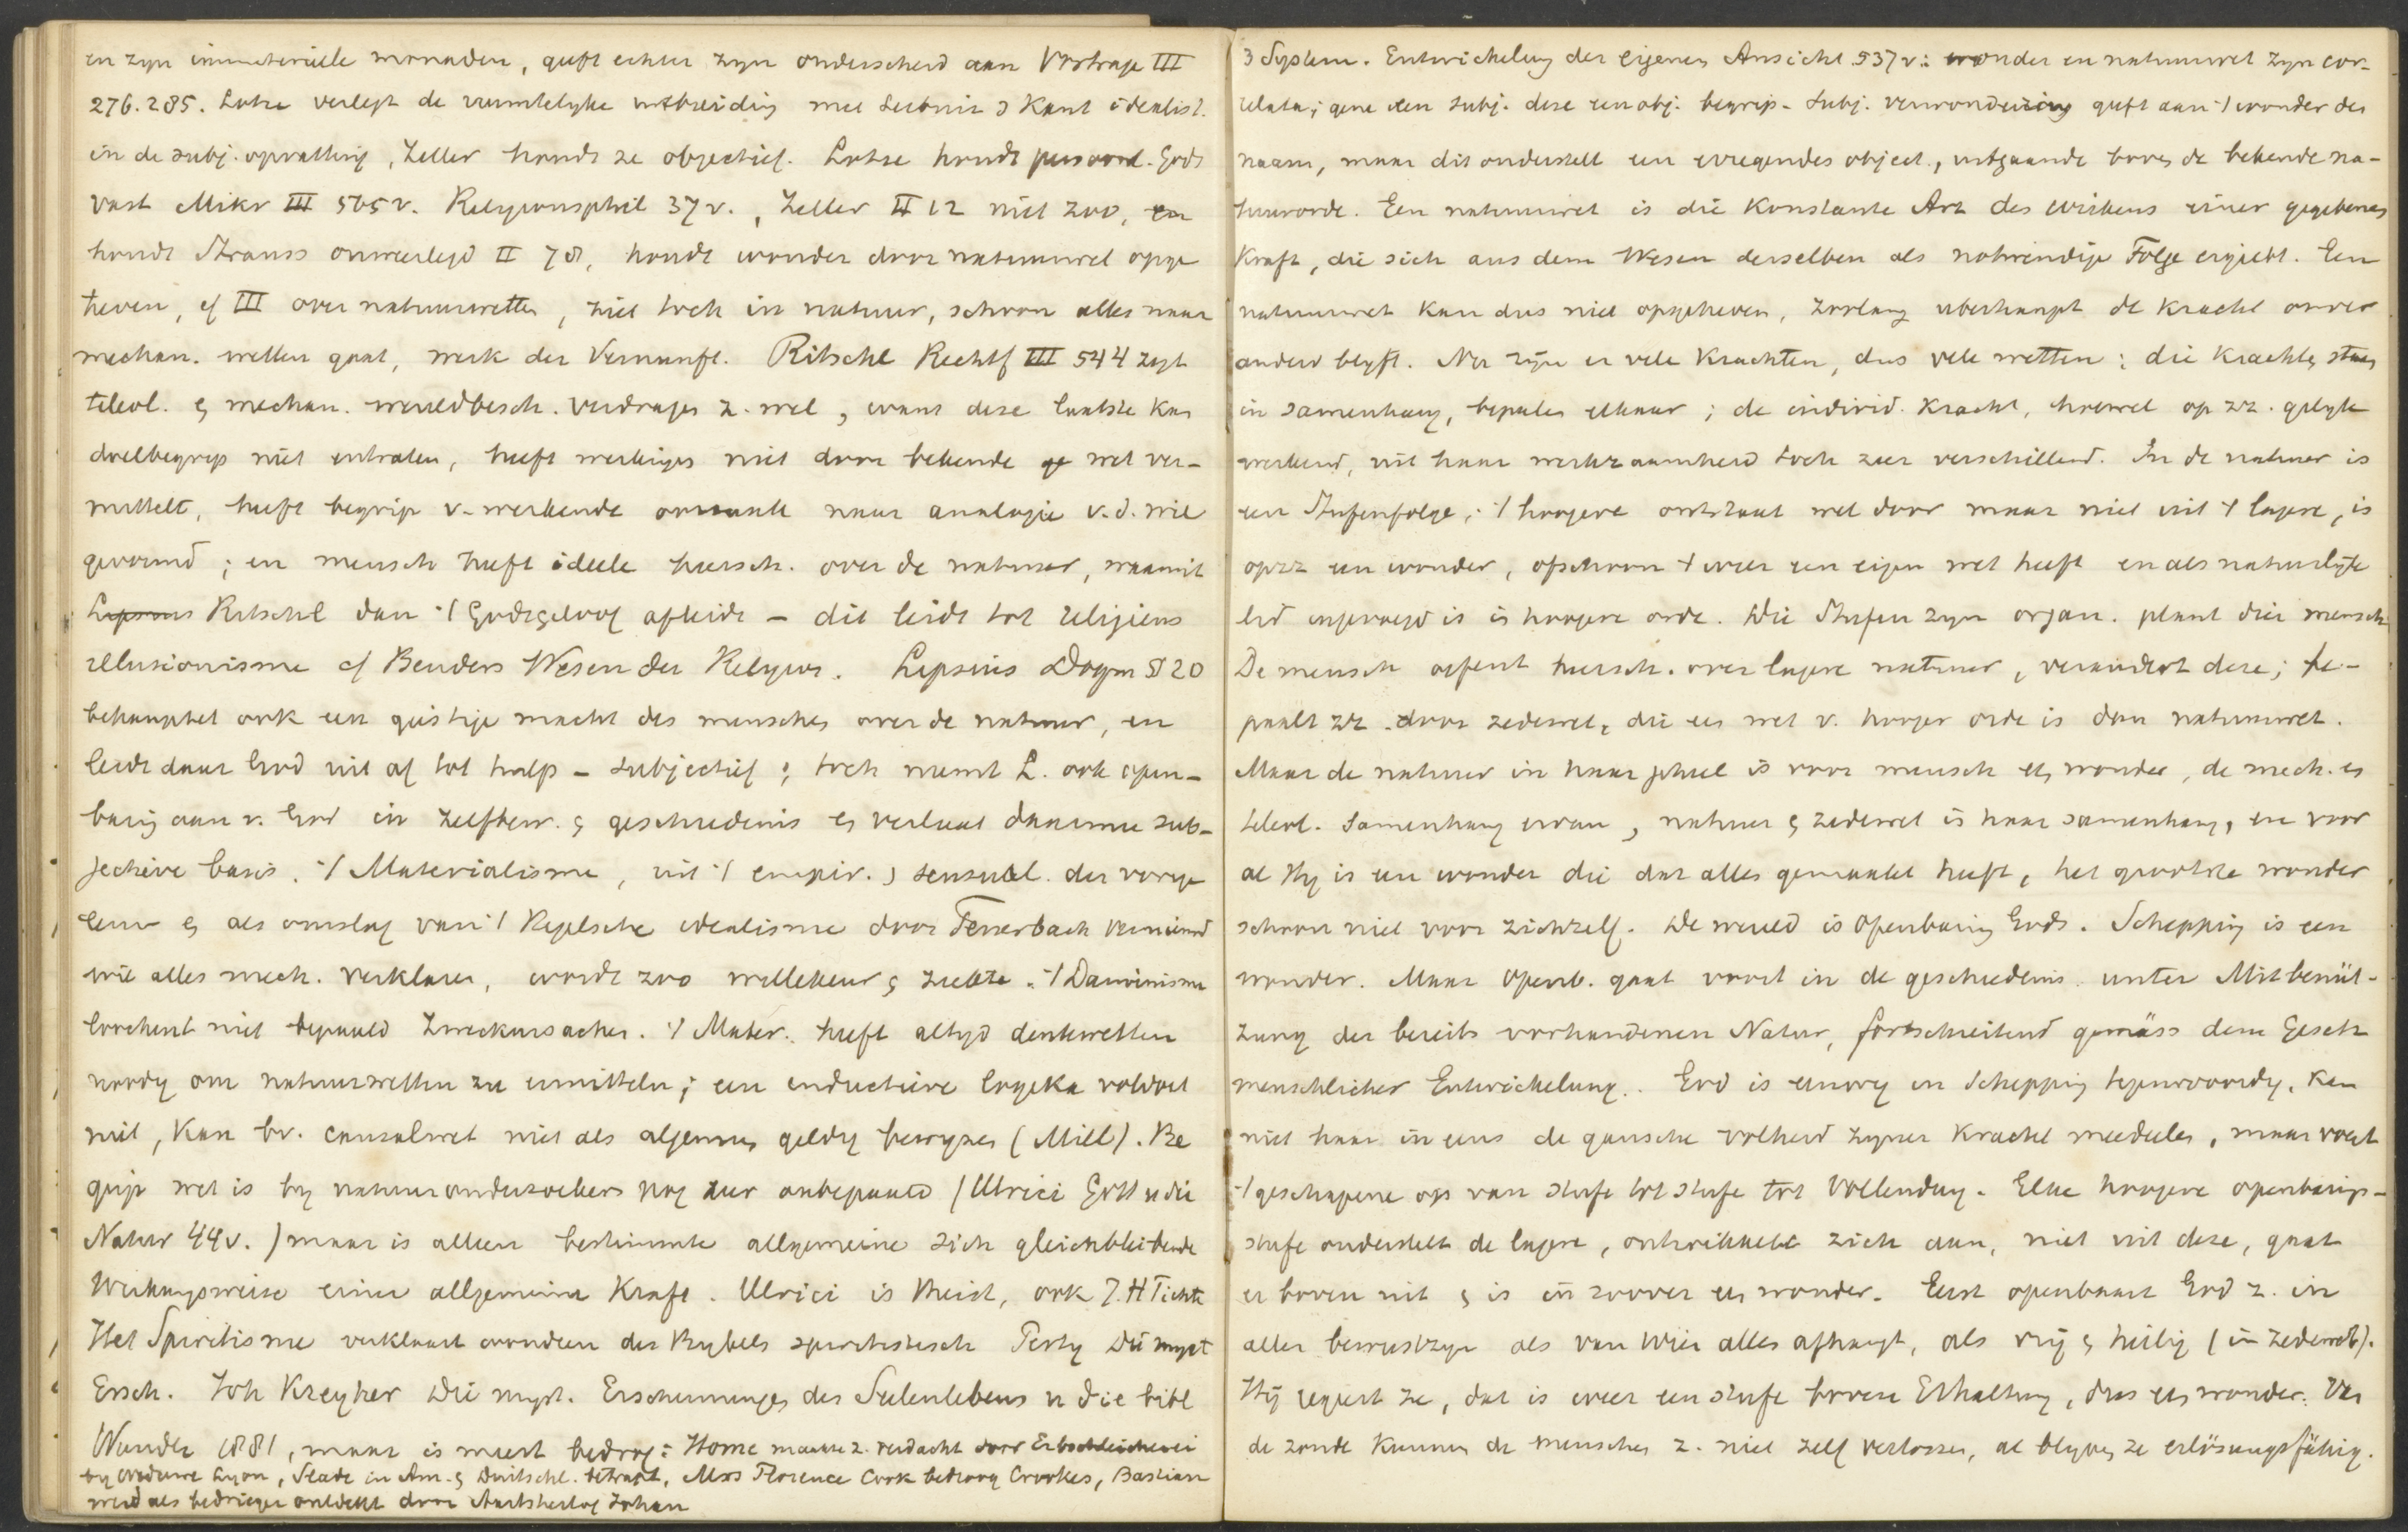 en zyn immateriële monaden, geeft echter zyn onderscheid aan Vortrage III
276. 285. Lotze verlegt de ruimtelyke uitbreiding met Leibniz & Kant idealist.
in de subj. opvatting, Zeller houdt ze objectief. Lotze houdt persoonl. Gods
vast Mikr III 565 v. Religionsphil 37 v., Zeller II 12 niet zoo, en
houdt Strauss onweerlegd II 78, houdt wonder door natuurwet opge
heven, cf III over natuurwetten, ziet toch in natuur, schoon alles naar
mechan. wetten gaat, werk der Vernunft. Ritschl Rechtf III 544 zegt
teleol. & mechan. wereldbesch. verdragen z. wel, want deze laatste kan
doelbegrip niet entraten, heeft werkingen niet door bekende ge wet ver-
mittelt, heeft begrip v. werkende oorzaak naar analogie v.d. wil
gevormd; en mensch heeft ideele heersch. over de natuur, waaruit
Lipsius Ritschl dan ·/ Godsgeloof afleidt – dit leidt tot religieus
illusionisme cf Benders Wesen der Religion. Lipsius Dogm § 20
behauptet ook een geistige macht des menschen over de natuur, en
leidt daar God uit af tot hulp – subjectief; toch neemt L. ook open-
baring aan v. God in zelfbew. & geschiedenis & verlaat daarmee sub-
jectieve basis. ·/ Materialisme, uit ·/ empir. & sensual. der vorige
eeuw & als omslag van ·/ Hegelsche idealisme door Feuerbach vernieuwd
wil alles mech. verklaren, wordt zoo willekeur & ziekte. ·/ Darwinisme
loochent niet bepaald Zweckursachen. ·/ Mater. heeft altyd denkwetten
noodig om natuurwetten zu ermitteln; een inductieve logika voldoet
niet, kan bv. causalwet niet als algemeen geldig bewyzen (Mill). Be
grip wet is by natuuronderzoekers nog zeer onbepaald (Ulrici Gott u die
Natur 44 v.) maar is alleen bestimmte allgemeine sich gleichbleibende
Wirkungsweise einer allgemeinen Kraft. Ulrici is theist, ook J. H Fichte
Het Spiritisme verklaart wonderen des Bybels spiritistisch Perty Die myst
Ersch. Joh Kreyher Die myst. Erscheinungen des Seelenlebens u die bibl
Wunder 1881, maar is meest bedrog: Home maakte z. verdacht door Erbschleicherei
by weduwe Lyon, Slade in Am. & Duitschl. betrapt, Miss Florence Cook bedroog Crookes, Bastian
werd als bedrieger ontdekt door Aartshertog Johan
3 System. Entwickelung der eigenen Ansicht 537 v: wonder en natuurwet zyn cor-
relata; gene een subj. deze een obj. begrip. Subj. verwondering geeft aan ·/ wonder den
naam, maar dit onderstelt een erregendes object, uitgaande boven de bekende na-
tuurorde. Een natuurwet is die konstante Art des Wirkens einer gegebenen
Kraft, die sich aus dem Wesen derselben als nothwendige Folge ergiebt. Een
natuurwet kan dus niet opgeheven, zoolang uberhaupt de kracht onver
anderd blyft. Nu zijn er vele krachten, dus vele wetten; die krachten staan
in samenhang, bepalen elkaar; de individ. kracht, hoewel op zz. gelyk
werkend, uit haar werkzaamheid toch zeer verschillend. In de natuur is
een Stufenfolge; ·/ hoogere ontstaat wel door maar niet uit ·/ lagere, is
opzz een wonder, ofschoon ·/ weer een eigen wet heeft en als natuurlyk
lid ingevoegd is in hoogere orde. Die Stufen zyn organ. plant dier mensch
De mensch oefent heersch. over lagere natuur, verandert deze; be-
paalt zz. door zedewet, die een wet v. hooger orde is dan natuurwet.
Maar de natuur in haar geheel is voor mensch een wonder, de mech. en
teleol. samenhang ervan, natuur & zedewet in haar samenhang, en voor
al Hy is een wonder die dat alles gemaakt heeft, het grootste wonder
schoon niet voor zichzelf. De wereld is Openbaring Gods. Schepping is een
wonder. Maar openb. gaat voort in de geschiedenis unter Mitbenüt-
zung der bereits vorhandenen Natur, fortschreitend gemäss dem Gesetz
menschlicher Entwickelung. God is eeuwig in Schepping tegenwoordig, kan
niet haar in eens de gansche volheid zyner kracht meedeelen, maar voert
·/ geschapene op van stufe tot stufe tot Vollendung. Elke hoogere openbarings-
stufe onderstelt de lagere, ontwikkelt zich aan, niet uit deze, gaat
er boven uit & is in zoover een wonder. Eerst openbaart God z. in
aller bewustzyn als van Wien alles afhangt, als vrij & heilig (in zedewet).
Hij regeert ze, dat is weer een stufe boven Erhaltung, dus een wonder. Van
de zonde kunnen de menschen z. niet zelf verlossen, al blyven ze erlösungsfähig.